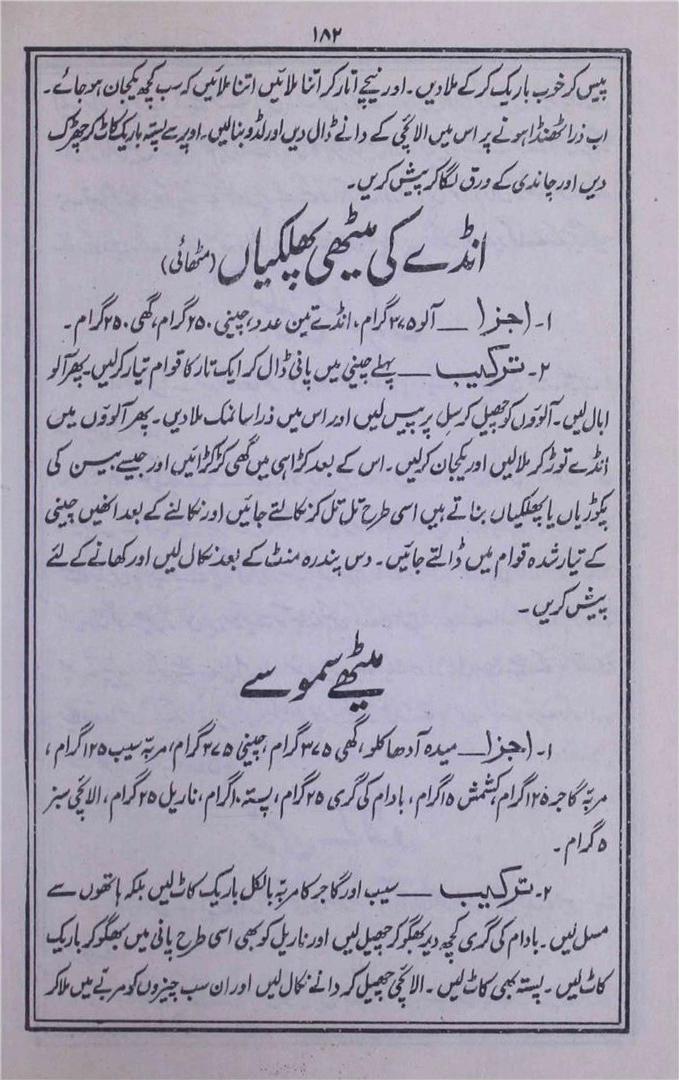 ۱۸۲
پیس کر خوب باریک کر کے ملا دیں۔ اور نیچے اتار کر اتنا ملائیں اتنا ملائیں کہ سب کچھ یکجان ہو جائے۔
اب ذرا ٹھنڈا ہونے پر اس میں الائچی کے دانے ڈال دیں اور لڈو بنا لیں۔ اوپر سے پستہ باریک کاٹ کر چھڑک
دیں اور چاندی کے ورق لگا کر پیش کریں۔
انڈے کی میٹھی پھلکیاں (مٹھائی)
۱۔ اجزا ــــ آلو ۳۷۵ گرام، انڈے تین عدد، چینی ۲۵۰ گرام، گھی ۲۵۰ گرام۔
۲۔ ترکیب ــــ پہلے چینی میں پانی ڈال کر ایک تار کا قوام تیار کر لیں۔ پھر آلو
ابال لیں۔ آلوؤں کو چھیل کر سِل پر پیس لیں اور اس میں ذرا سا نمک ملا دیں۔ پھر آلوؤں میں
انڈے توڑ کر ملا لیں اور یکجان کر لیں۔ اس کے بعد کڑاہی میں گھی کڑکڑائیں اور جیسے بیسن کی
پکوڑیاں یا پھلکیاں بناتے ہیں اسی طرح تل تل کر نکالتے جائیں اور نکالنے کے بعد انھیں چینی
کے تیار شدہ قوام میں ڈالتے جائیں۔ دس پندرہ منٹ کے بعد نکال لیں اور کھانے کے لئے
پیش کریں۔
میٹھے سموسے
۱۔ اجزا ــــ میدہ آدھا کلو، گھی ۳۷۵ گرام، چینی ۳۷۵ گرام، مربّہ سیب ۱۲۵ گرام،
مربّہ گاجر ۱۲۵ گرام، کشمش ۱۵ گرام، بادام کی گری ۲۵ گرام، پستہ ۱۰ گرام، ناریل ۲۵ گرام، الائچی سبز
۵ گرام۔
۲۔ ترکیب ــــ سیب اور گاجر کا مربّہ بالکل باریک کاٹ لیں بلکہ ہاتھوں سے
مسل لیں۔ بادام کی گری کچھ دیر بھگو کر چھیل لیں اور ناریل کو بھی اسی طرح پانی میں بھگو کر باریک
کاٹ لیں۔ پستہ بھی کاٹ لیں۔ الائچی چھیل کر دانے نکال لیں اور ان سب چیزوں کو مربّے میں ملا کر